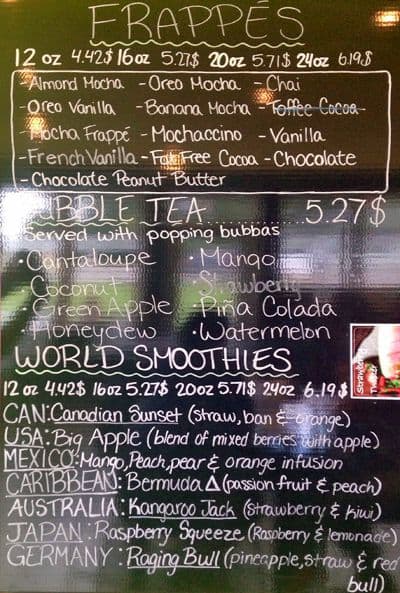 FRAPPÉS
12 oz 4.42$ 16 oz 5.27$ 20oz 5.71$ 24oz 6.19$
-Almond Mocha -Oreo Mocha -Chai
-Oreo Vanilla -Banana Mocha -Toffee Cocoa
-Mocha Frappé -Mochaccino -Vanilla
-French Vanilla -Fat Free Cocoa -Chocolate
-Chocolate Peanut Butter
BUBBLE TEA..........5.27$
Served with popping bubbas
•Cantaloupe •Mango
•Coconut •Strawberry
•Green Apple •Piña Colada
•Honeydew •Watermelon
WORLD SMOOTHIES
12 oz 4.42$ 16oz 5.27$ 20oz 5.71$ 24oz 6.19$
CAN: Canadian Sunset (straw, ban & orange)
USA: Big Apple (blend of mixed berries with apple)
MEXICO: Mango, Peach, pear & orange infusion
CARIBBEAN: Bermuda Δ (passion fruit & peach)
AUSTRALIA: Kangaroo Jack (strawberry & kiwi)
JAPAN: Raspberry Squeeze (Raspberry & lemonade)
GERMANY: Raging Bull (pineapple, straw & red
bull)